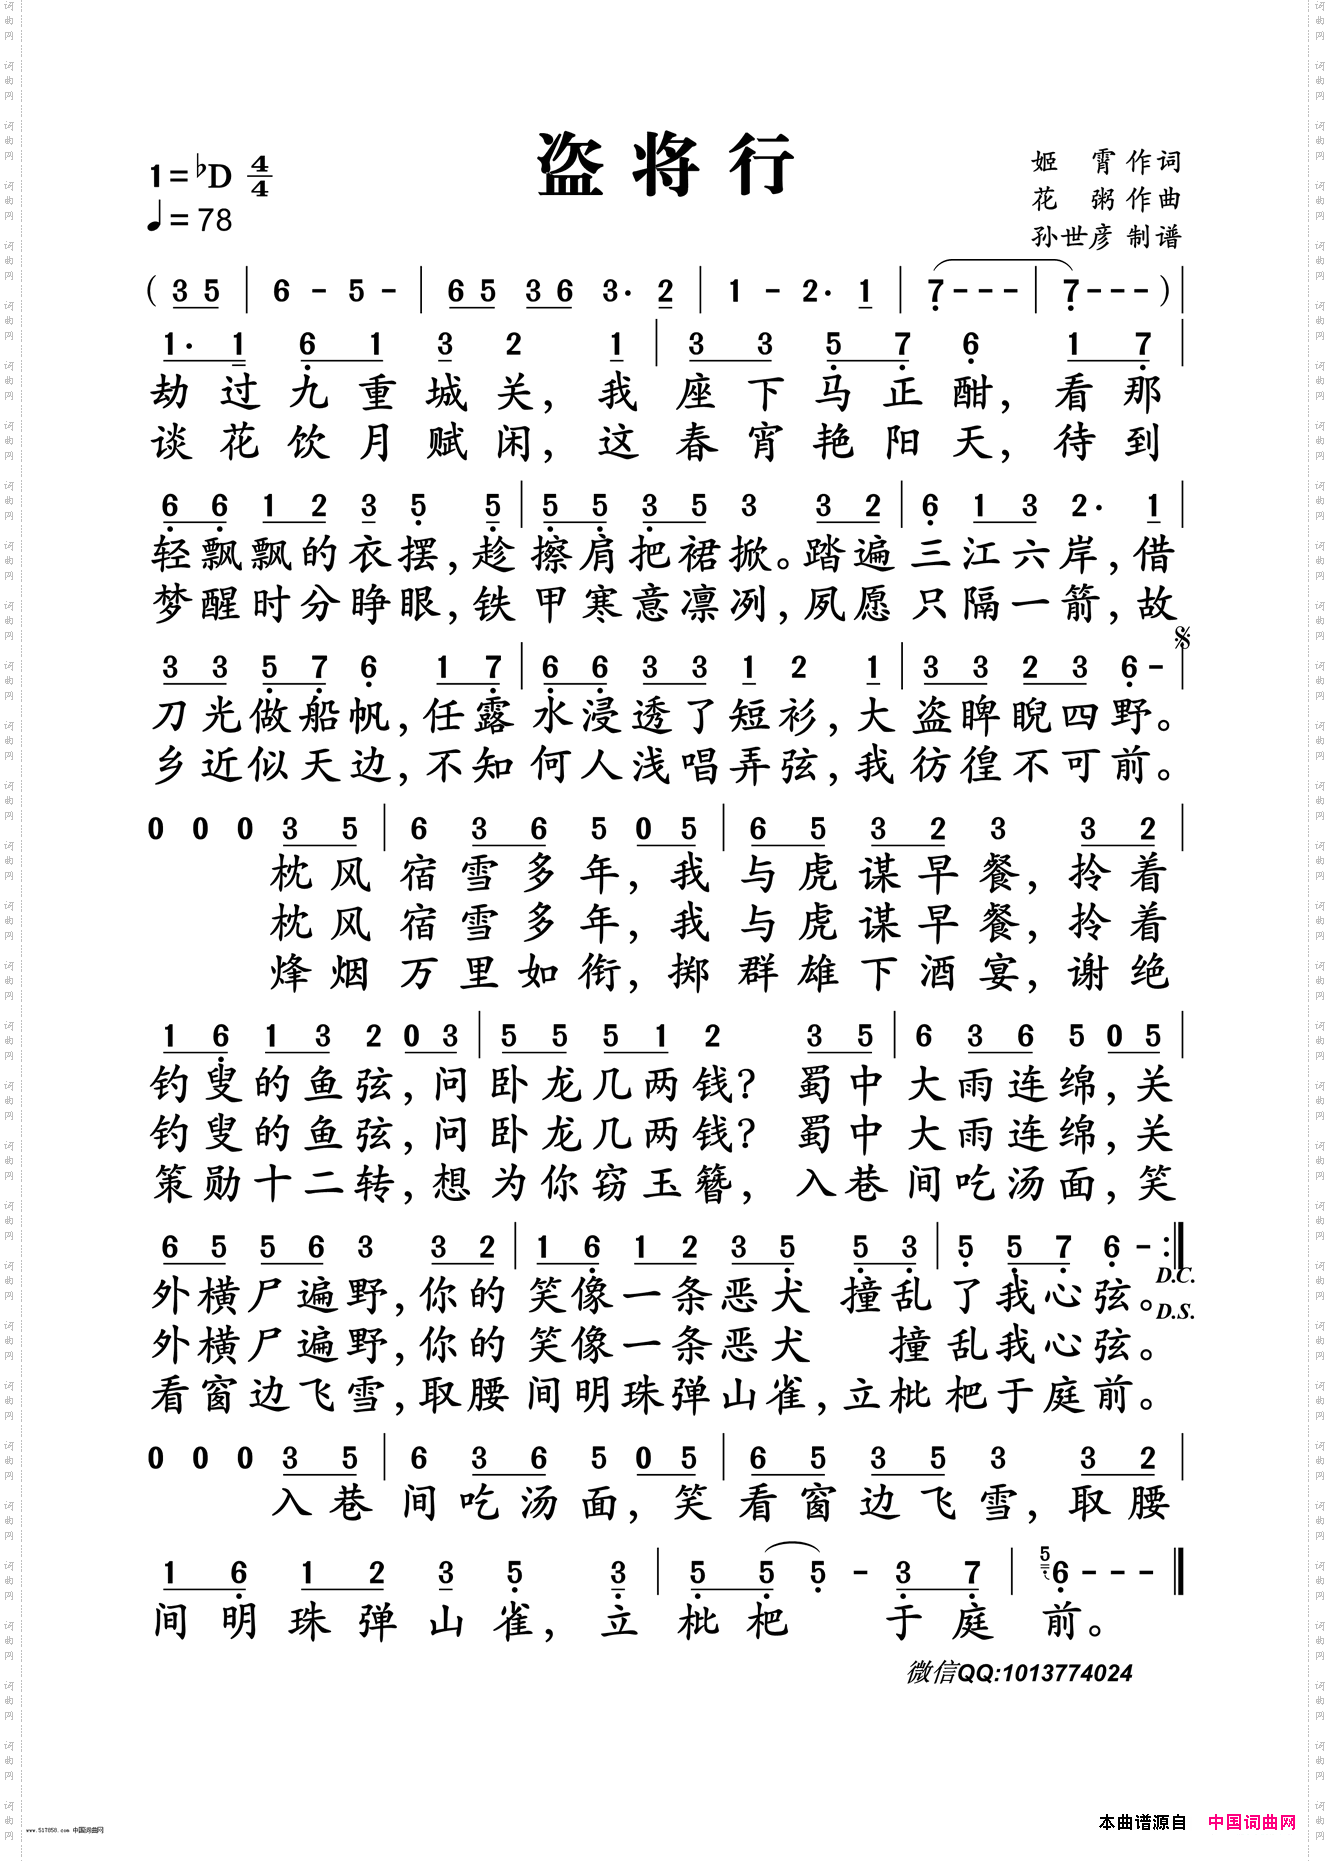 盗将行
1=♭D 4/4
♩=78
姬 霄 作词
花 粥 作曲
孙世彦 制谱
( 3 5 | 6 - 5 - | 6 5 3 6 3· 2 | 1 - 2· 1 | 7 - - - | 7 - - - ) |
1· 1 6 1 3 2 1 | 3 3 5 7 6 1 7 |
劫过九重城关，我座下马正酣，看那
谈花饮月赋闲，这春宵艳阳天，待到
6 6 1 2 3 5 5 | 5 5 3 5 3 3 2 | 6 1 3 2· 1 |
轻飘飘的衣摆，趁擦肩把裙掀。踏遍三江六岸，借
梦醒时分睁眼，铁甲寒意凛冽，夙愿只隔一箭，故
3 3 5 7 6 1 7 | 6 6 3 3 1 2 1 | 3 3 2 3 6 - |
刀光做船帆，任露水浸透了短衫，大盗睥睨四野。
乡近似天边，不知何人浅唱弄弦，我彷徨不可前。
0 0 0 3 5 | 6 3 6 5 0 5 | 6 5 3 2 3 3 2 |
枕风宿雪多年，我与虎谋早餐，拎着
枕风宿雪多年，我与虎谋早餐，拎着
烽烟万里如衔，掷群雄下酒宴，谢绝
1 6 1 3 2 0 3 | 5 5 5 1 2 3 5 | 6 3 6 5 0 5 |
钓叟的鱼弦，问卧龙几两钱？蜀中大雨连绵，关
钓叟的鱼弦，问卧龙几两钱？蜀中大雨连绵，关
策勋十二转，想为你窃玉簪，入巷间吃汤面，笑
6 5 5 6 3 3 2 | 1 6 1 2 3 5 5 3 | 5 5 7 6 - :|
外横尸遍野，你的笑像一条恶犬 撞乱了我心弦。
D.C.
D.S.
外横尸遍野，你的笑像一条恶犬 撞乱我心弦。
看窗边飞雪，取腰间明珠弹山雀，立枇杷于庭前。
0 0 0 3 5 | 6 3 6 5 0 5 | 6 5 3 5 3 3 2 |
入巷间吃汤面，笑看窗边飞雪，取腰
1 6 1 2 3 5 3 | 5 5 5 - 3 7 | 5 6 - - - ‖
间明珠弹山雀，立枇杷 于庭前。
微信QQ:1013774024
本曲谱源自 中国词曲网
www.517858.com 中国词曲网